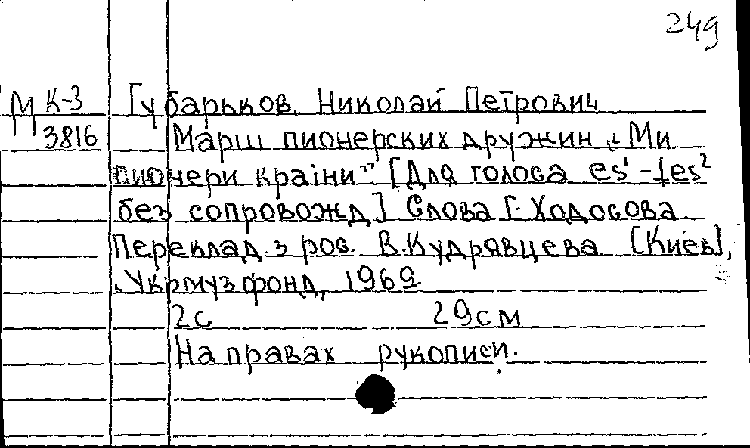 249
М К-3 Губарьков Николай Петрович
3816 Марш пионерских дружин „Ми
пионери країни" [Для голоса es¹-fes²
без сопровожд] Слова Г. Ходосова
Переклад з рос. В. Кудрявцева [Киев],
„Укрмузфонд, 1969
2с 29см
На правах рукописи.